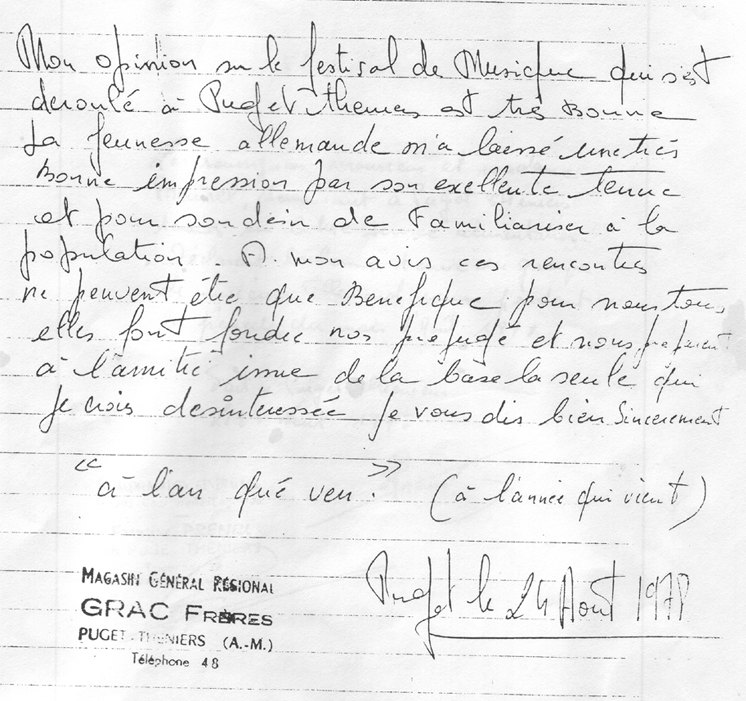 Mon opinion sur le festival de Musique qui s'est
deroulé à Puget-Theniers est très Bonne
La jeunesse allemande m'a laissé une très
Bonne impression par son exellente tenue
et pour son de Familiariser à la
population. A mon avis ces rencontres
ne peuvent être que Benefique pour nous tous,
elles font fondre nos prejugé et nous preparent
à l'amitié issue de la base la seule qui
je crois desinteressée je vous dis bien Sincerement
"à l'an qué ven." (à l'année qui vient)
Puget le 24 Août 1978
MAGASIN GÉNÉRAL RÉGIONAL
GRAC FRÈRES
PUGET-THENIERS (A.-M.)
Téléphone 48